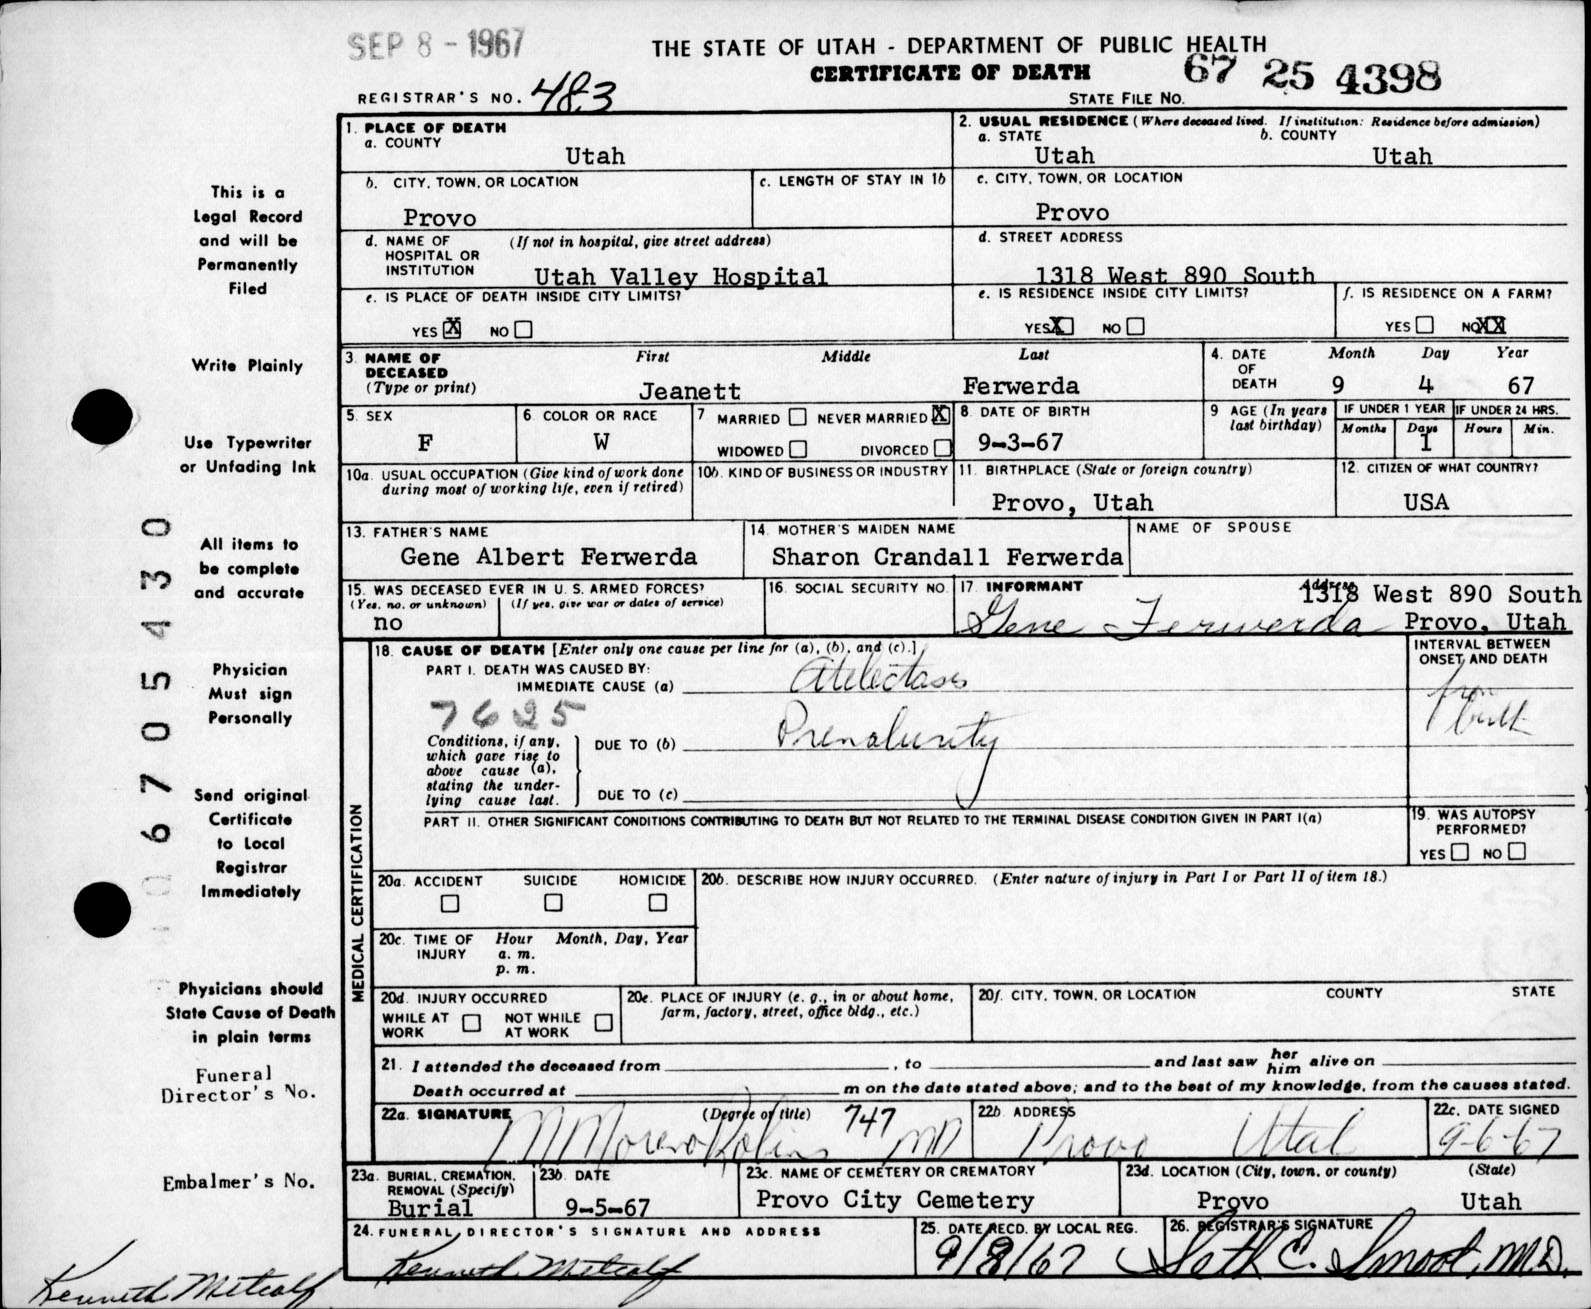 SEP 8 - 1967
THE STATE OF UTAH - DEPARTMENT OF PUBLIC HEALTH
CERTIFICATE OF DEATH
67 25 4398
REGISTRAR'S NO. 483
STATE FILE NO.
This is a
Legal Record
and will be
Permanently
Filed
Write Plainly
Use Typewriter
or Unfading Ink
All items to
be complete
and accurate
Physician
Must sign
Personally
Send original
Certificate
to Local
Registrar
Immediately
Physicians should
State Cause of Death
in plain terms
Funeral
Director's No.
Embalmer's No.
Kenneth Metcalf
067054 30
1. PLACE OF DEATH
a. COUNTY
Utah
2. USUAL RESIDENCE (Where deceased lived. If institution: Residence before admission)
a. STATE b. COUNTY
Utah Utah
b. CITY, TOWN, OR LOCATION
Provo
c. LENGTH OF STAY IN 1b
c. CITY, TOWN, OR LOCATION
Provo
d. NAME OF HOSPITAL OR INSTITUTION (If not in hospital, give street address)
Utah Valley Hospital
d. STREET ADDRESS
1318 West 890 South
e. IS PLACE OF DEATH INSIDE CITY LIMITS?
YES X NO
e. IS RESIDENCE INSIDE CITY LIMITS?
YES X NO
f. IS RESIDENCE ON A FARM?
YES NO XX
3. NAME OF DECEASED (Type or print)
First Middle Last
Jeanett Ferwerda
4. DATE OF DEATH
Month Day Year
9 4 67
5. SEX
F
6 COLOR OR RACE
W
7 MARRIED NEVER MARRIED X
WIDOWED DIVORCED
8. DATE OF BIRTH
9-3-67
9 AGE (In years last birthday)
IF UNDER 1 YEAR IF UNDER 24 HRS.
Months Days Hours Min.
1
10a. USUAL OCCUPATION (Give kind of work done
during most of working life, even if retired)
10b. KIND OF BUSINESS OR INDUSTRY
11. BIRTHPLACE (State or foreign country)
Provo, Utah
12. CITIZEN OF WHAT COUNTRY?
USA
13. FATHER'S NAME
Gene Albert Ferwerda
14. MOTHER'S MAIDEN NAME
Sharon Crandall Ferwerda
NAME OF SPOUSE
15. WAS DECEASED EVER IN U. S. ARMED FORCES?
(Yes, no, or unknown) (If yes, give war or dates of service)
no
16. SOCIAL SECURITY NO.
17. INFORMANT Address
1318 West 890 South
Gene Ferwerda Provo, Utah
MEDICAL CERTIFICATION
18. CAUSE OF DEATH [Enter only one cause per line for (a), (b), and (c).]
INTERVAL BETWEEN ONSET AND DEATH
PART I. DEATH WAS CAUSED BY:
IMMEDIATE CAUSE (a) Atelectasis
from birth
7625
Conditions, if any,
which gave rise to
above cause (a),
stating the under-
lying cause last.
DUE TO (b) Prematurity
DUE TO (c)
PART II. OTHER SIGNIFICANT CONDITIONS CONTRIBUTING TO DEATH BUT NOT RELATED TO THE TERMINAL DISEASE CONDITION GIVEN IN PART I(a)
19. WAS AUTOPSY PERFORMED?
YES NO
20a. ACCIDENT SUICIDE HOMICIDE
20b. DESCRIBE HOW INJURY OCCURRED. (Enter nature of injury in Part I or Part II of item 18.)
20c. TIME OF INJURY
Hour Month, Day, Year
a. m.
p. m.
20d. INJURY OCCURRED
WHILE AT WORK NOT WHILE AT WORK
20e. PLACE OF INJURY (e. g., in or about home,
farm, factory, street, office bldg., etc.)
20f. CITY, TOWN, OR LOCATION COUNTY STATE
21. I attended the deceased from , to and last saw her him alive on
Death occurred at m on the date stated above; and to the best of my knowledge, from the causes stated.
22a. SIGNATURE (Degree or title) 747
MD
22b. ADDRESS
Provo Utah
22c. DATE SIGNED
9-6-67
23a. BURIAL, CREMATION, REMOVAL (Specify)
Burial
23b. DATE
9-5-67
23c. NAME OF CEMETERY OR CREMATORY
Provo City Cemetery
23d. LOCATION (City, town, or county) (State)
Provo Utah
24. FUNERAL DIRECTOR'S SIGNATURE AND ADDRESS
Kenneth Metcalf
25. DATE RECD. BY LOCAL REG.
9/8/67
26. REGISTRAR'S SIGNATURE
Seth C. Smoot, M.D.